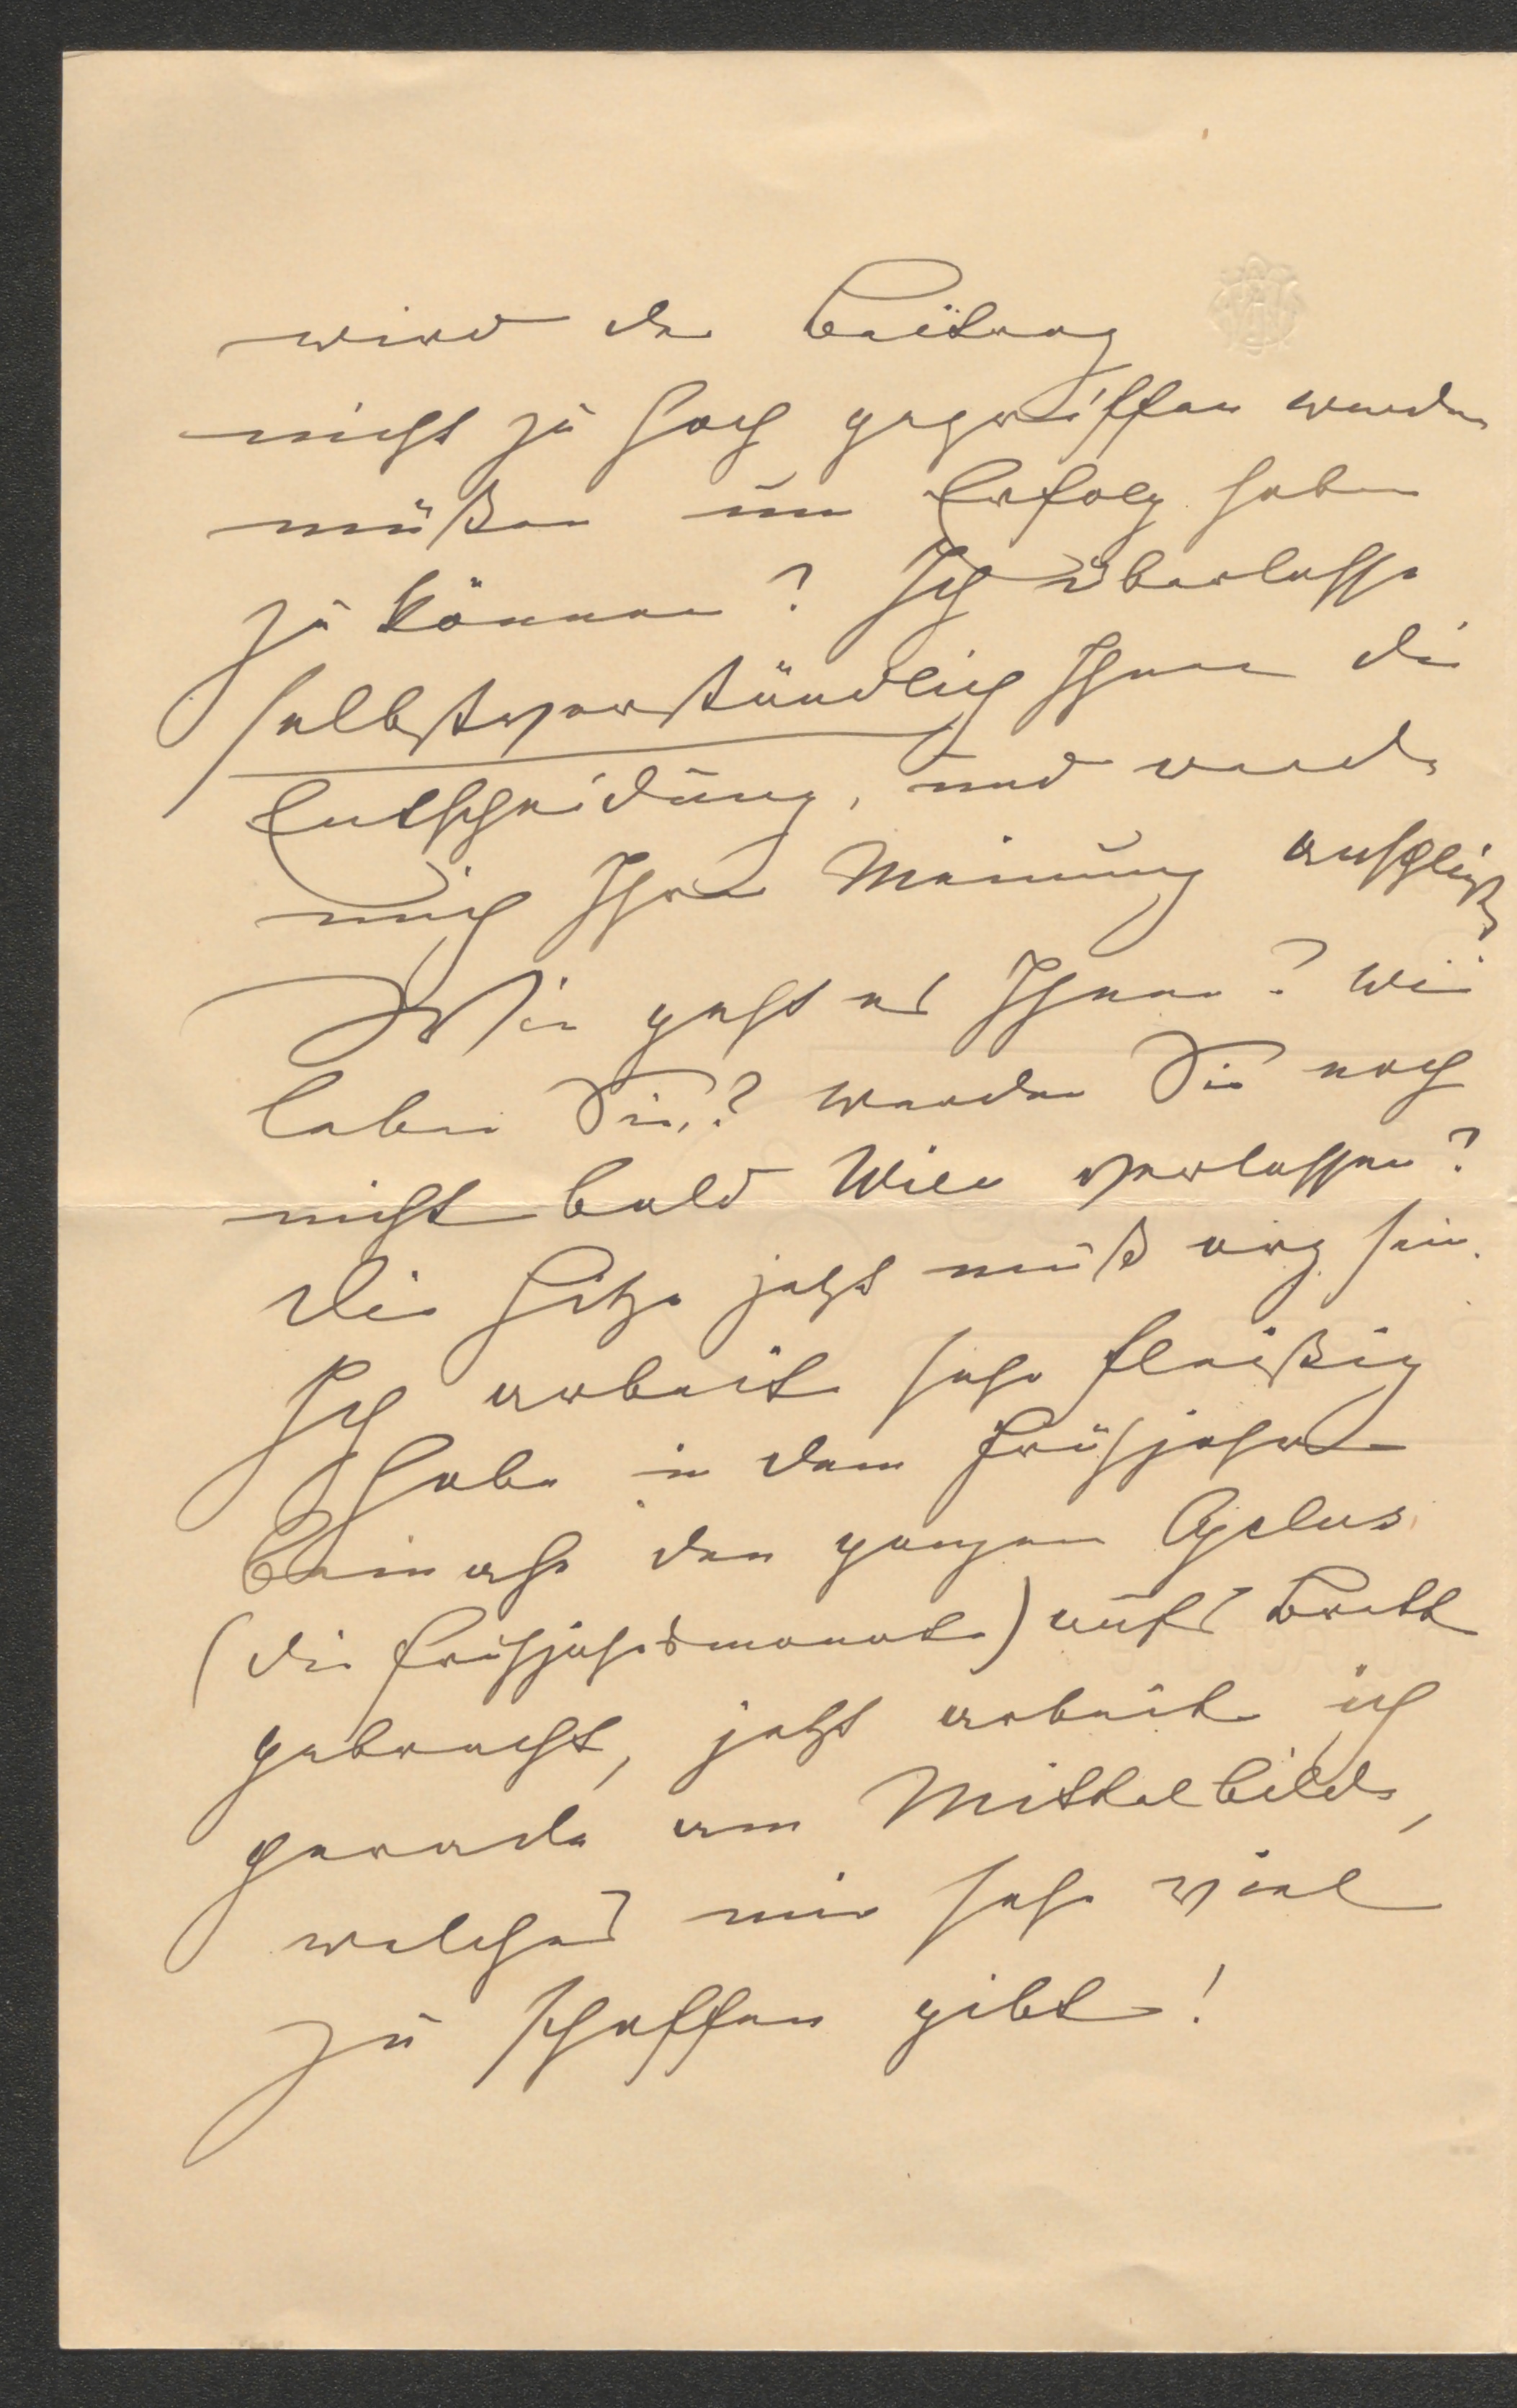 wird der Beitrag
nicht zu hoch gegriffen werden
müßen um Erfolg haben
zu können? Ich überlasse
selbstverständlich Ihnen die
Entscheidung, und werde
mich Ihrer Meinung anschließen
Wie geht es Ihnen? Wie
leben Sie? werden Sie noch
nicht bald Wien verlassen?
Die Hitze jetzt muß arg sein.
Ich arbeite sehr fleißig
habe in dem Frühjahre
beinahe den ganzen Cyclus
(die Frühjahrsmonate) aufs Brett
gebracht, jetzt arbeite ich
gerade am Mittelbilde,
welches mir sehr viel
zu schaffen gibt!